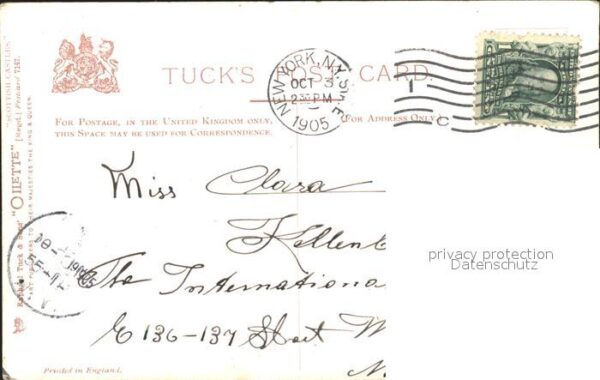 TUCK'S POST CARD.
FOR POSTAGE, IN THE UNITED KINGDOM ONLY,
THIS SPACE MAY BE USED FOR CORRESPONDENCE.
(FOR ADDRESS ONLY.)
NEW YORK, N.Y.
OCT 3
2 30 PM
1905
1
C
"SCOTTISH CASTLES."
"OILETTE" [Regd.] Postcard
Raphael Tuck & Sons'
ART PUBLISHERS TO THEIR MAJESTIES THE KING & QUEEN.
Miss Clara
Kellen
The Internationa
E 136-137 St
N
privacy protection
Datenschutz
1905
Printed in England.